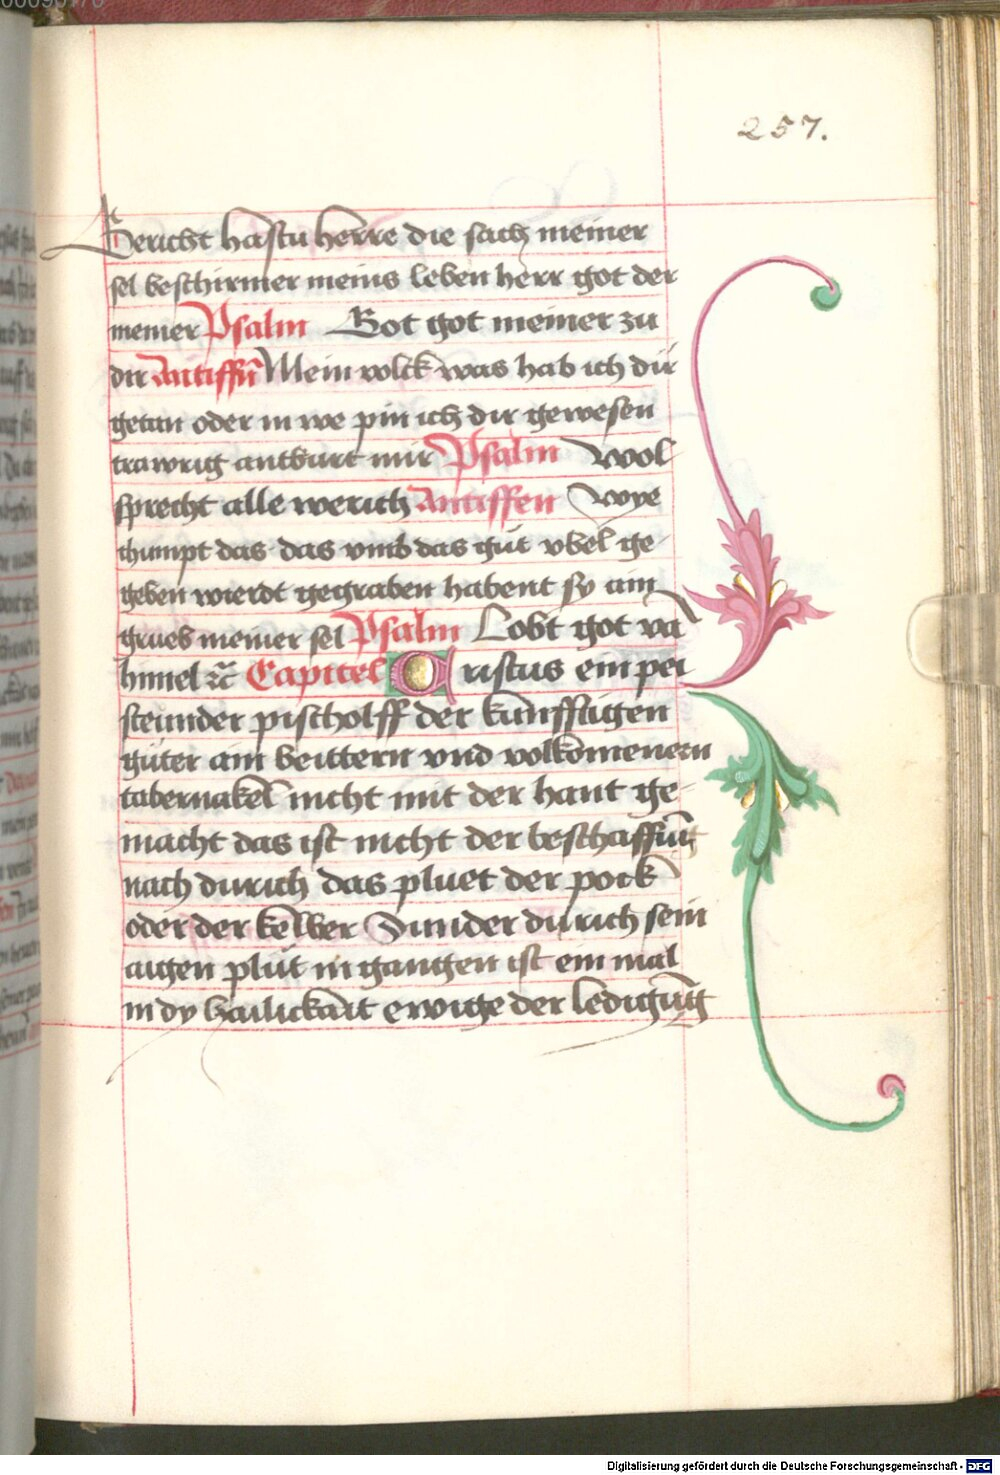 257.
Gericht hastu herre die sach meiner
sel beschirmer meins leben herr got der
meiner Psalm Got got meiner zu
dir Antiffn̄ Mein volck was hab ich dir
getan oder in we pin ich dir gewesen
trawrig antburt mir Psalm wol
sprecht alle werich Antiffen wye
chumpt das das vmb das gůt vbel ge
geben wierdt gegraben habent sy ain
grueb meiner sel Psalm Lobt got vā
himel ⁊c̄ Capitel Cristus ein pei
steunder pischolff der kunfftigen
gůter ain beittern vnd volkomenern
tabernakel nicht mit der hant ge
macht das ist nicht der beschaffūng
nach durich das pluet der pock
oder der kelber Sunder durich sein
aigen plůt in gangen ist ein mal
in dy hailickait ewige der ledigūng
Digitalisierung gefördert durch die Deutsche Forschungsgemeinschaft - DFG